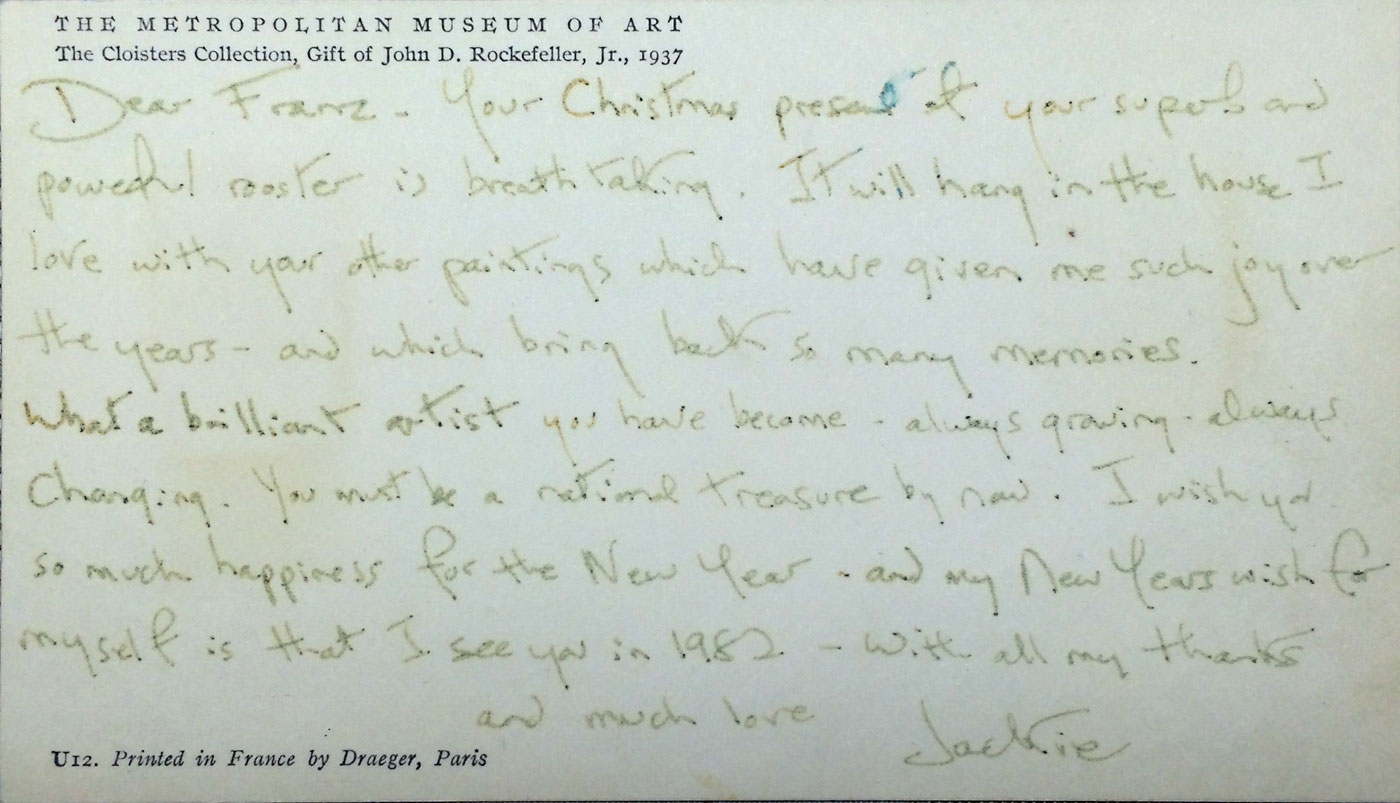 THE METROPOLITAN MUSEUM OF ART
The Cloisters Collection, Gift of John D. Rockefeller, Jr., 1937
Dear Franz - Your Christmas present of your superb and
powerful rooster is breath taking. It will hang in the house I
love with your other paintings which have given me such joy over
the years - and which bring back so many memories.
What a brilliant artist you have become - always growing - always
changing. You must be a national treasure by now. I wish you
so much happiness for the New Year - and my New Years wish for
myself is that I see you in 1982 - With all my thanks
and much love
Jackie
U12. Printed in France by Draeger, Paris